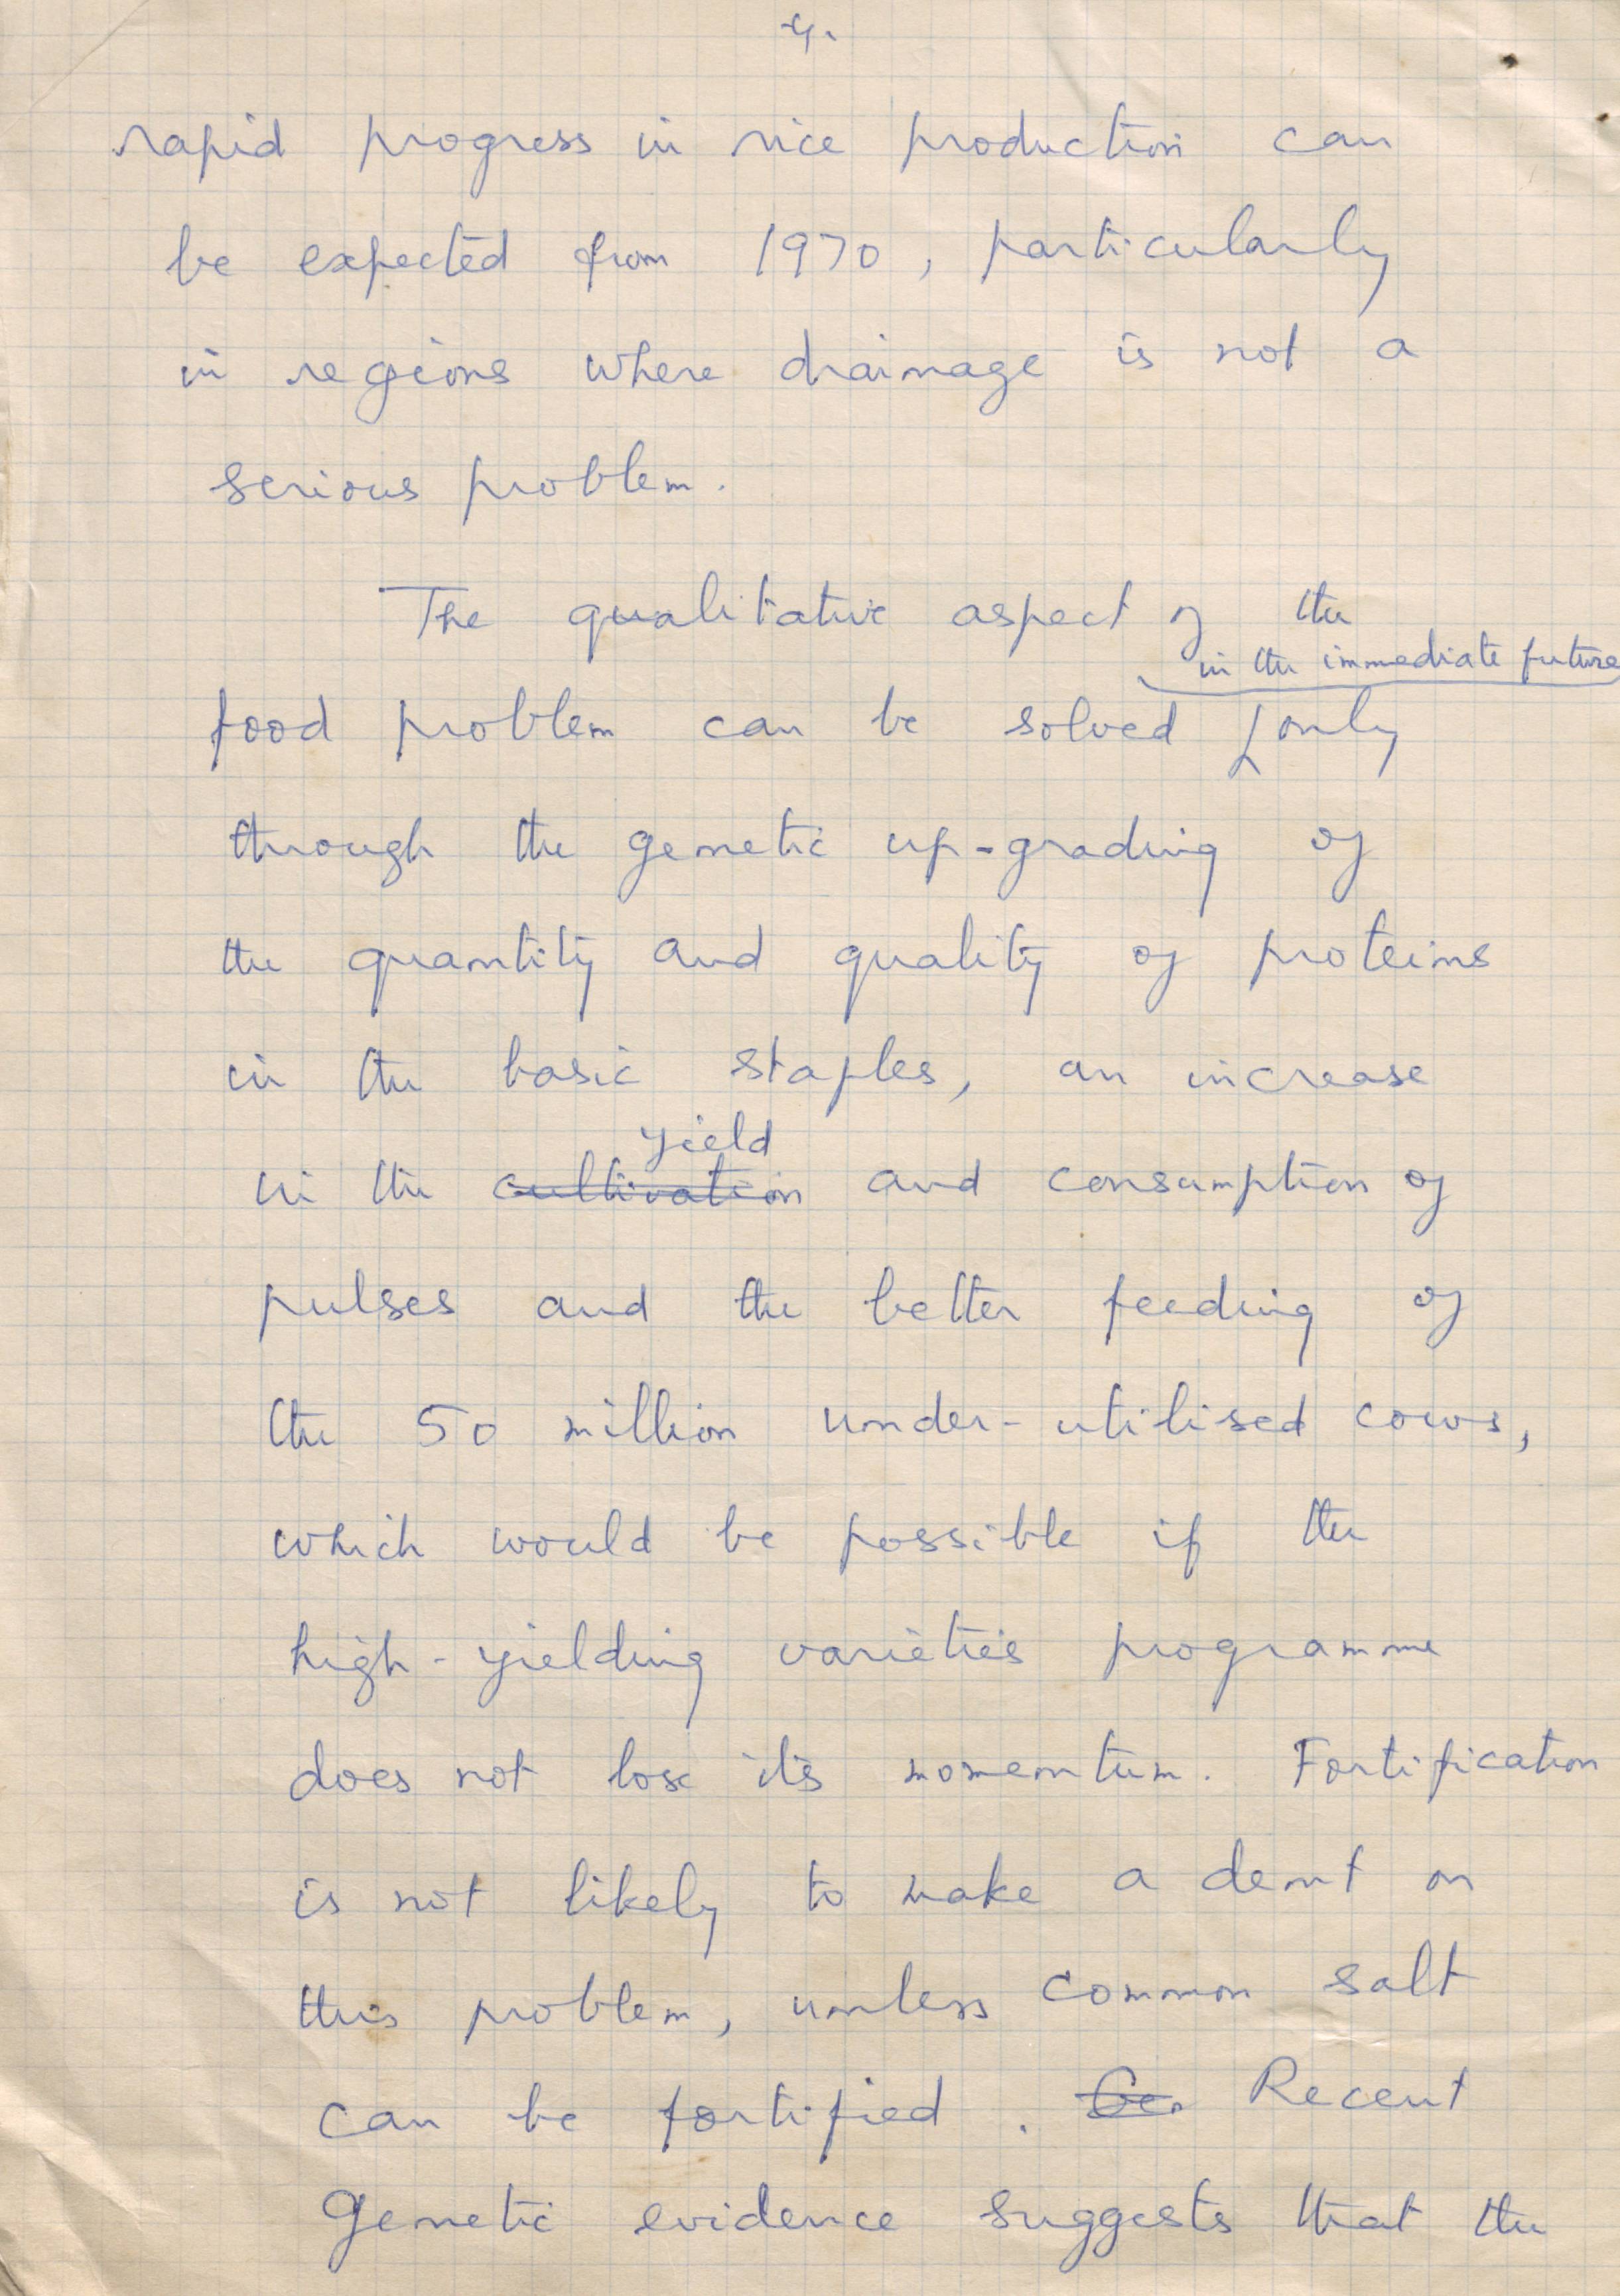 4.
rapid progress in rice production can
be expected from 1970, particularly
in regions where drainage is not a
serious problem.
The qualitative aspect of the
in the immediate future
food problem can be solved only
through the genetic up-grading of
the quantity and quality of proteins
in the basic staples, an increase
yield
in the cultivation and consumption of
pulses and the better feeding of
the 50 million under-utilised cows,
which would be possible if the
high-yielding varieties programme
does not lose its momentum. Fortification
is not likely to make a dent on
this problem, unless common salt
can be fortified. Ge Recent
Genetic evidence suggests that the